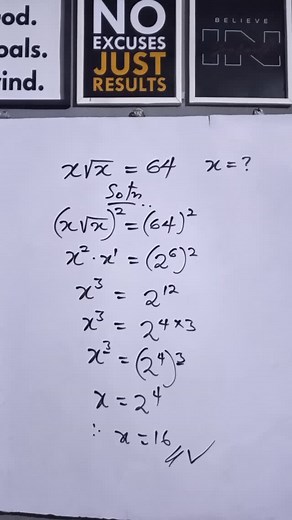 od.
oals.
ind.
NO
EXCUSES
JUST
RESULTS
BELIEVE
IN
x√x = 64   x = ?
Soln
(x√x)² = (64)²
x² · x¹ = (2⁶)²
x³ = 2¹²
x³ = 2⁴ˣ³
x³ = (2⁴)³
x = 2⁴
∴ x = 16